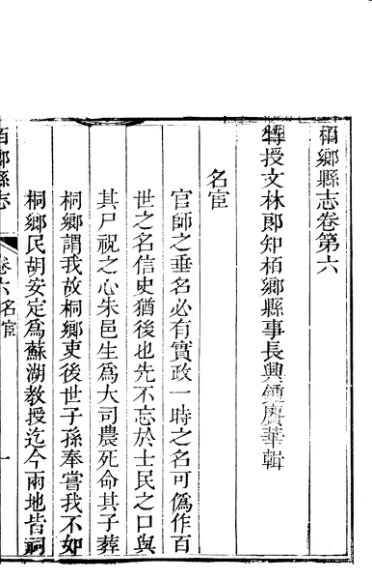 栢鄉縣志卷第六
特授文林郎知栢鄉縣事長興鍾賡華輯
名宦
官師之垂名必有實政一時之名可僞作百
世之名信史猶後也先不忘於士民之口與
其尸祝之心朱邑生爲大司農死命其子葬
桐鄉謂我故桐鄉吏後世子孫奉嘗我不如
桐鄉民胡安定爲蘇湖教授迄今兩地皆祠
栢鄉縣志
卷六名宦
一